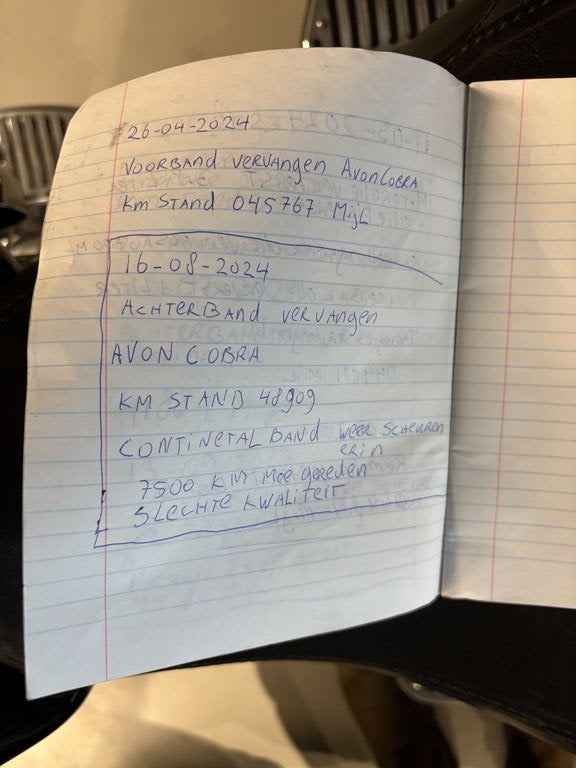 26-04-2024
VOORBAND VERVANGEN AVON COBRA
KM STAND 045767 MijL
16-08-2024
ACHTERBAND VERVANGEN
AVON COBRA
KM STAND 48909
CONTINETAL BAND WEER SCHEUREN
ERIN
7500 KM MEE gereden
SLECHTE KWALITEIT